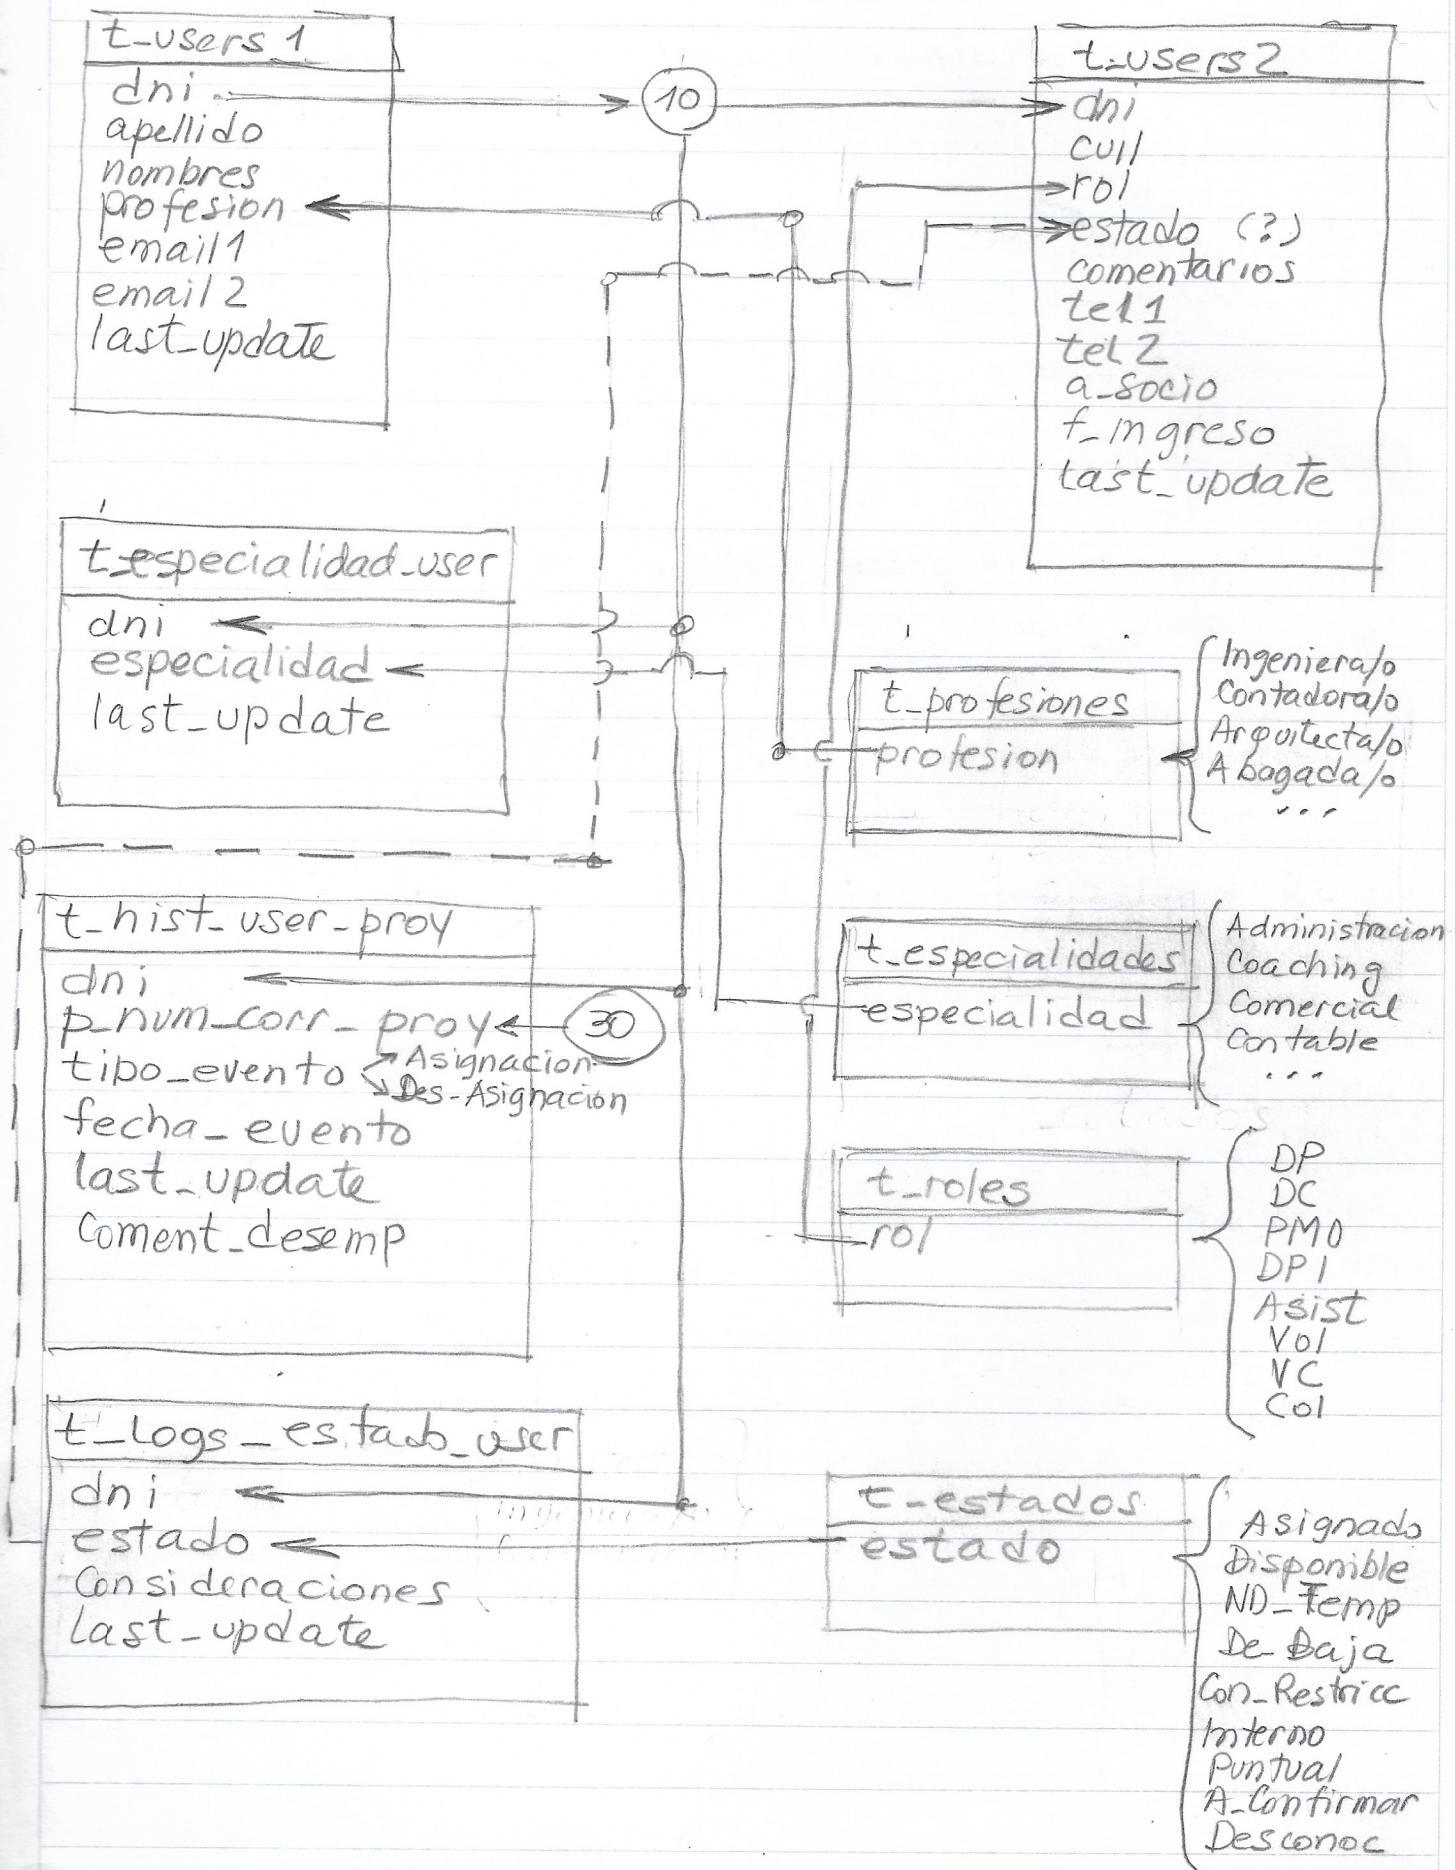 t_users1
dni
apellido
nombres
profesion
email1
email2
last_update
10
t_users2
dni
cuil
rol
estado (?)
comentarios
tel1
tel2
a_socio
f_ingreso
last_update
t_especialidad_user
dni
especialidad
last_update
t_profesiones
profesion
Ingeniera/o
Contadora/o
Arquitecta/o
Abogada/o
...
t_hist_user_proy
dni
p_num_corr_proy
30
tipo_evento
Asignacion
Des-Asignacion
fecha_evento
last_update
Coment_desemp
t_especialidades
especialidad
Administracion
Coaching
Comercial
Contable
...
t_roles
rol
DP
DC
PMO
DPI
Asist
Vol
VC
Col
t_Logs_estado_user
dni
estado
Consideraciones
last_update
t_estados
estado
Asignado
Disponible
ND_Temp
De_Baja
Con_Restricc
Interno
Puntual
A_Confirmar
Desconoc